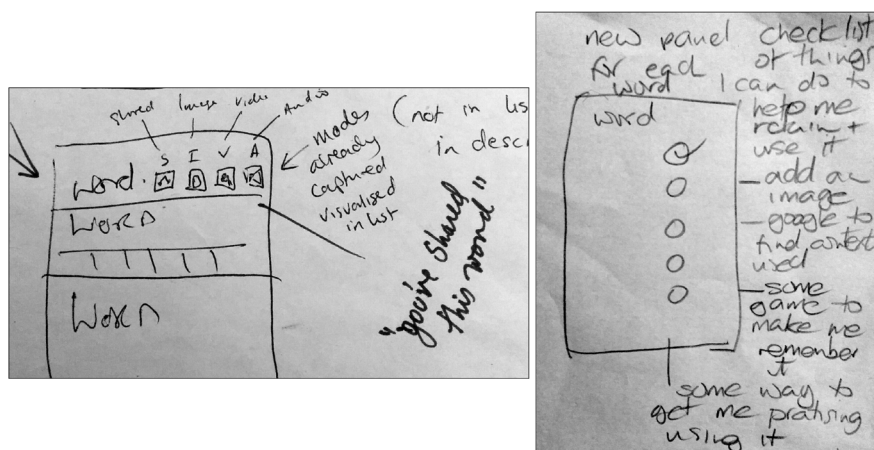 shared Image video Audio
S I V A
word.
WORD
WORD
modes
already
captured
visualised
in list
(not in lis
in descri
"you've shared
this word"
new panel
for each
word
checklist
of things
I can do to
help me
retain +
use it
word
- add an
image
- google to
find context
used
- some
game to
make me
remember
it
some way to
get me pratising
using it